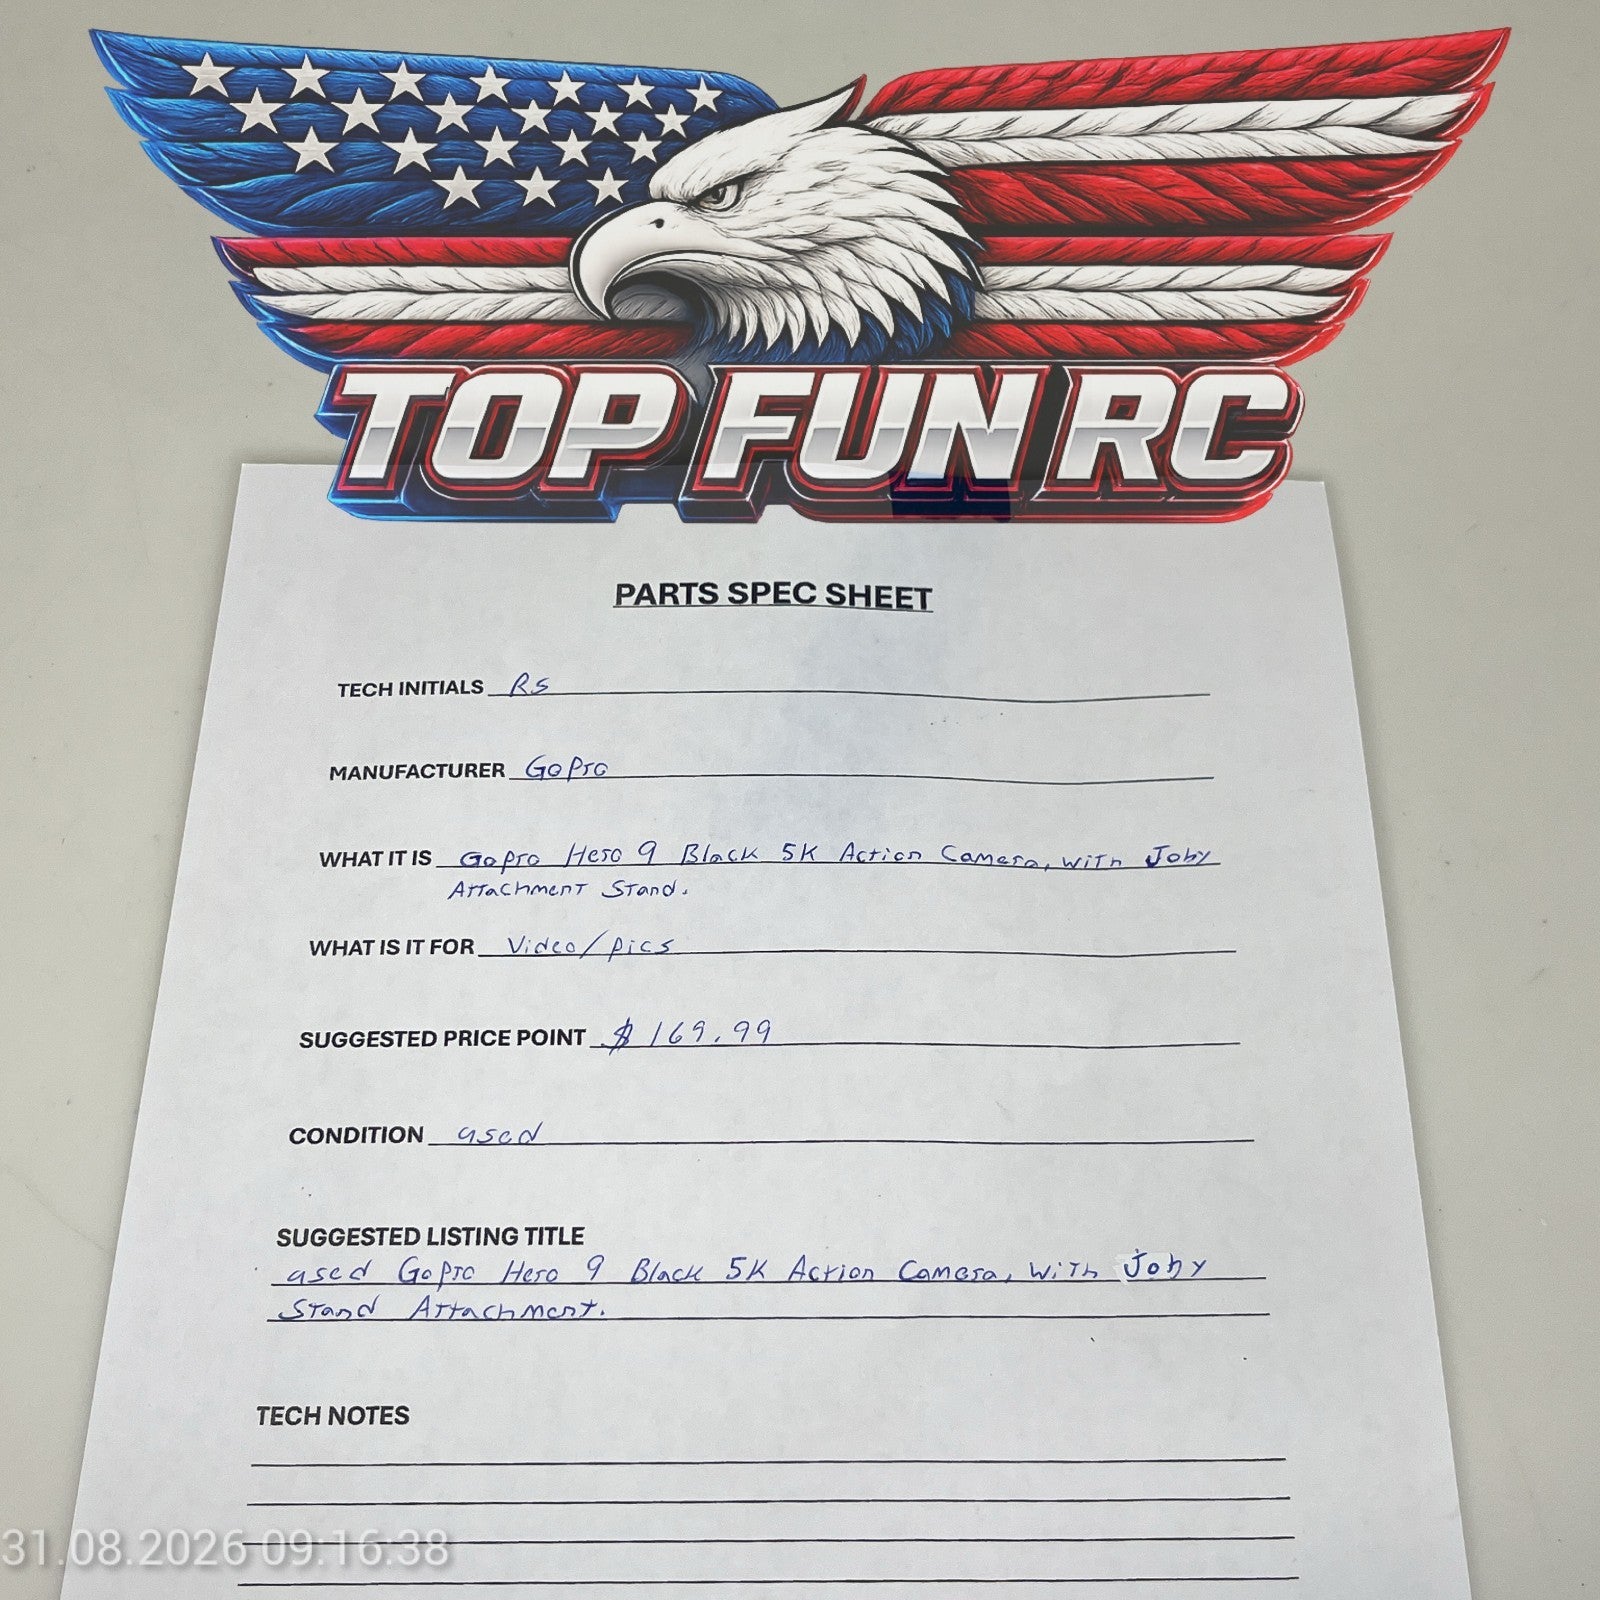 TOP FUN RC
PARTS SPEC SHEET
TECH INITIALS RS
MANUFACTURER GoPro
WHAT IT IS GoPro Hero 9 Black 5K Action Camera, with Joby
Attachment Stand.
WHAT IS IT FOR Video/pics
SUGGESTED PRICE POINT $169.99
CONDITION used
SUGGESTED LISTING TITLE
used GoPro Hero 9 Black 5K Action Camera, with Joby
Stand Attachment.
TECH NOTES
31.08.2026 09:16:38